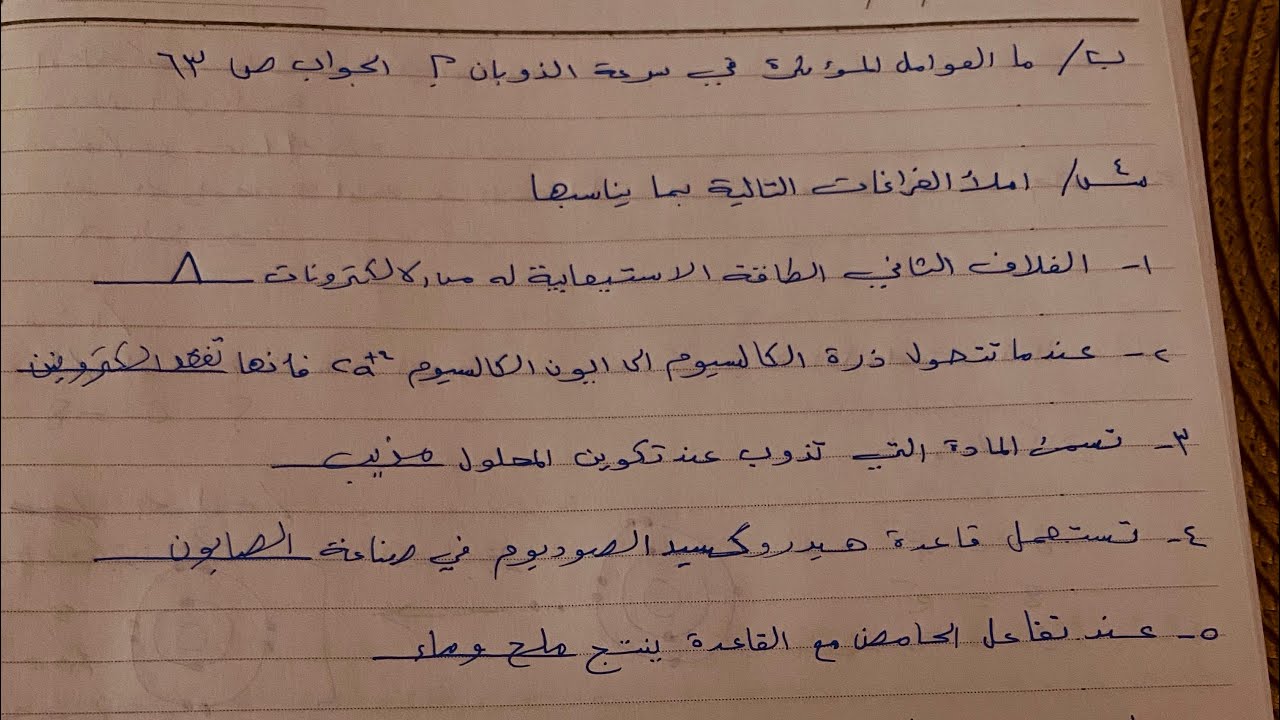 ب/ ما العوامل المؤثرة في سرعة الذوبان ؟ الجواب ص ٦٣
س٤/ املأ الفراغات التالية بما يناسبها
١- الغلاف الثاني الطاقة الاستيعابية له من الالكترونات ٨
٢- عندما تتحول ذرة الكالسيوم الى ايون الكالسيوم Ca+٢ فانها تفقد الكترونين
٣- تسمى المادة التي تذوب عند تكوين المحلول مذيب
٤- تستعمل قاعدة هيدروكسيد الصوديوم في صناعة الصابون
٥- عند تفاعل الحامض مع القاعدة ينتج ملح وماء